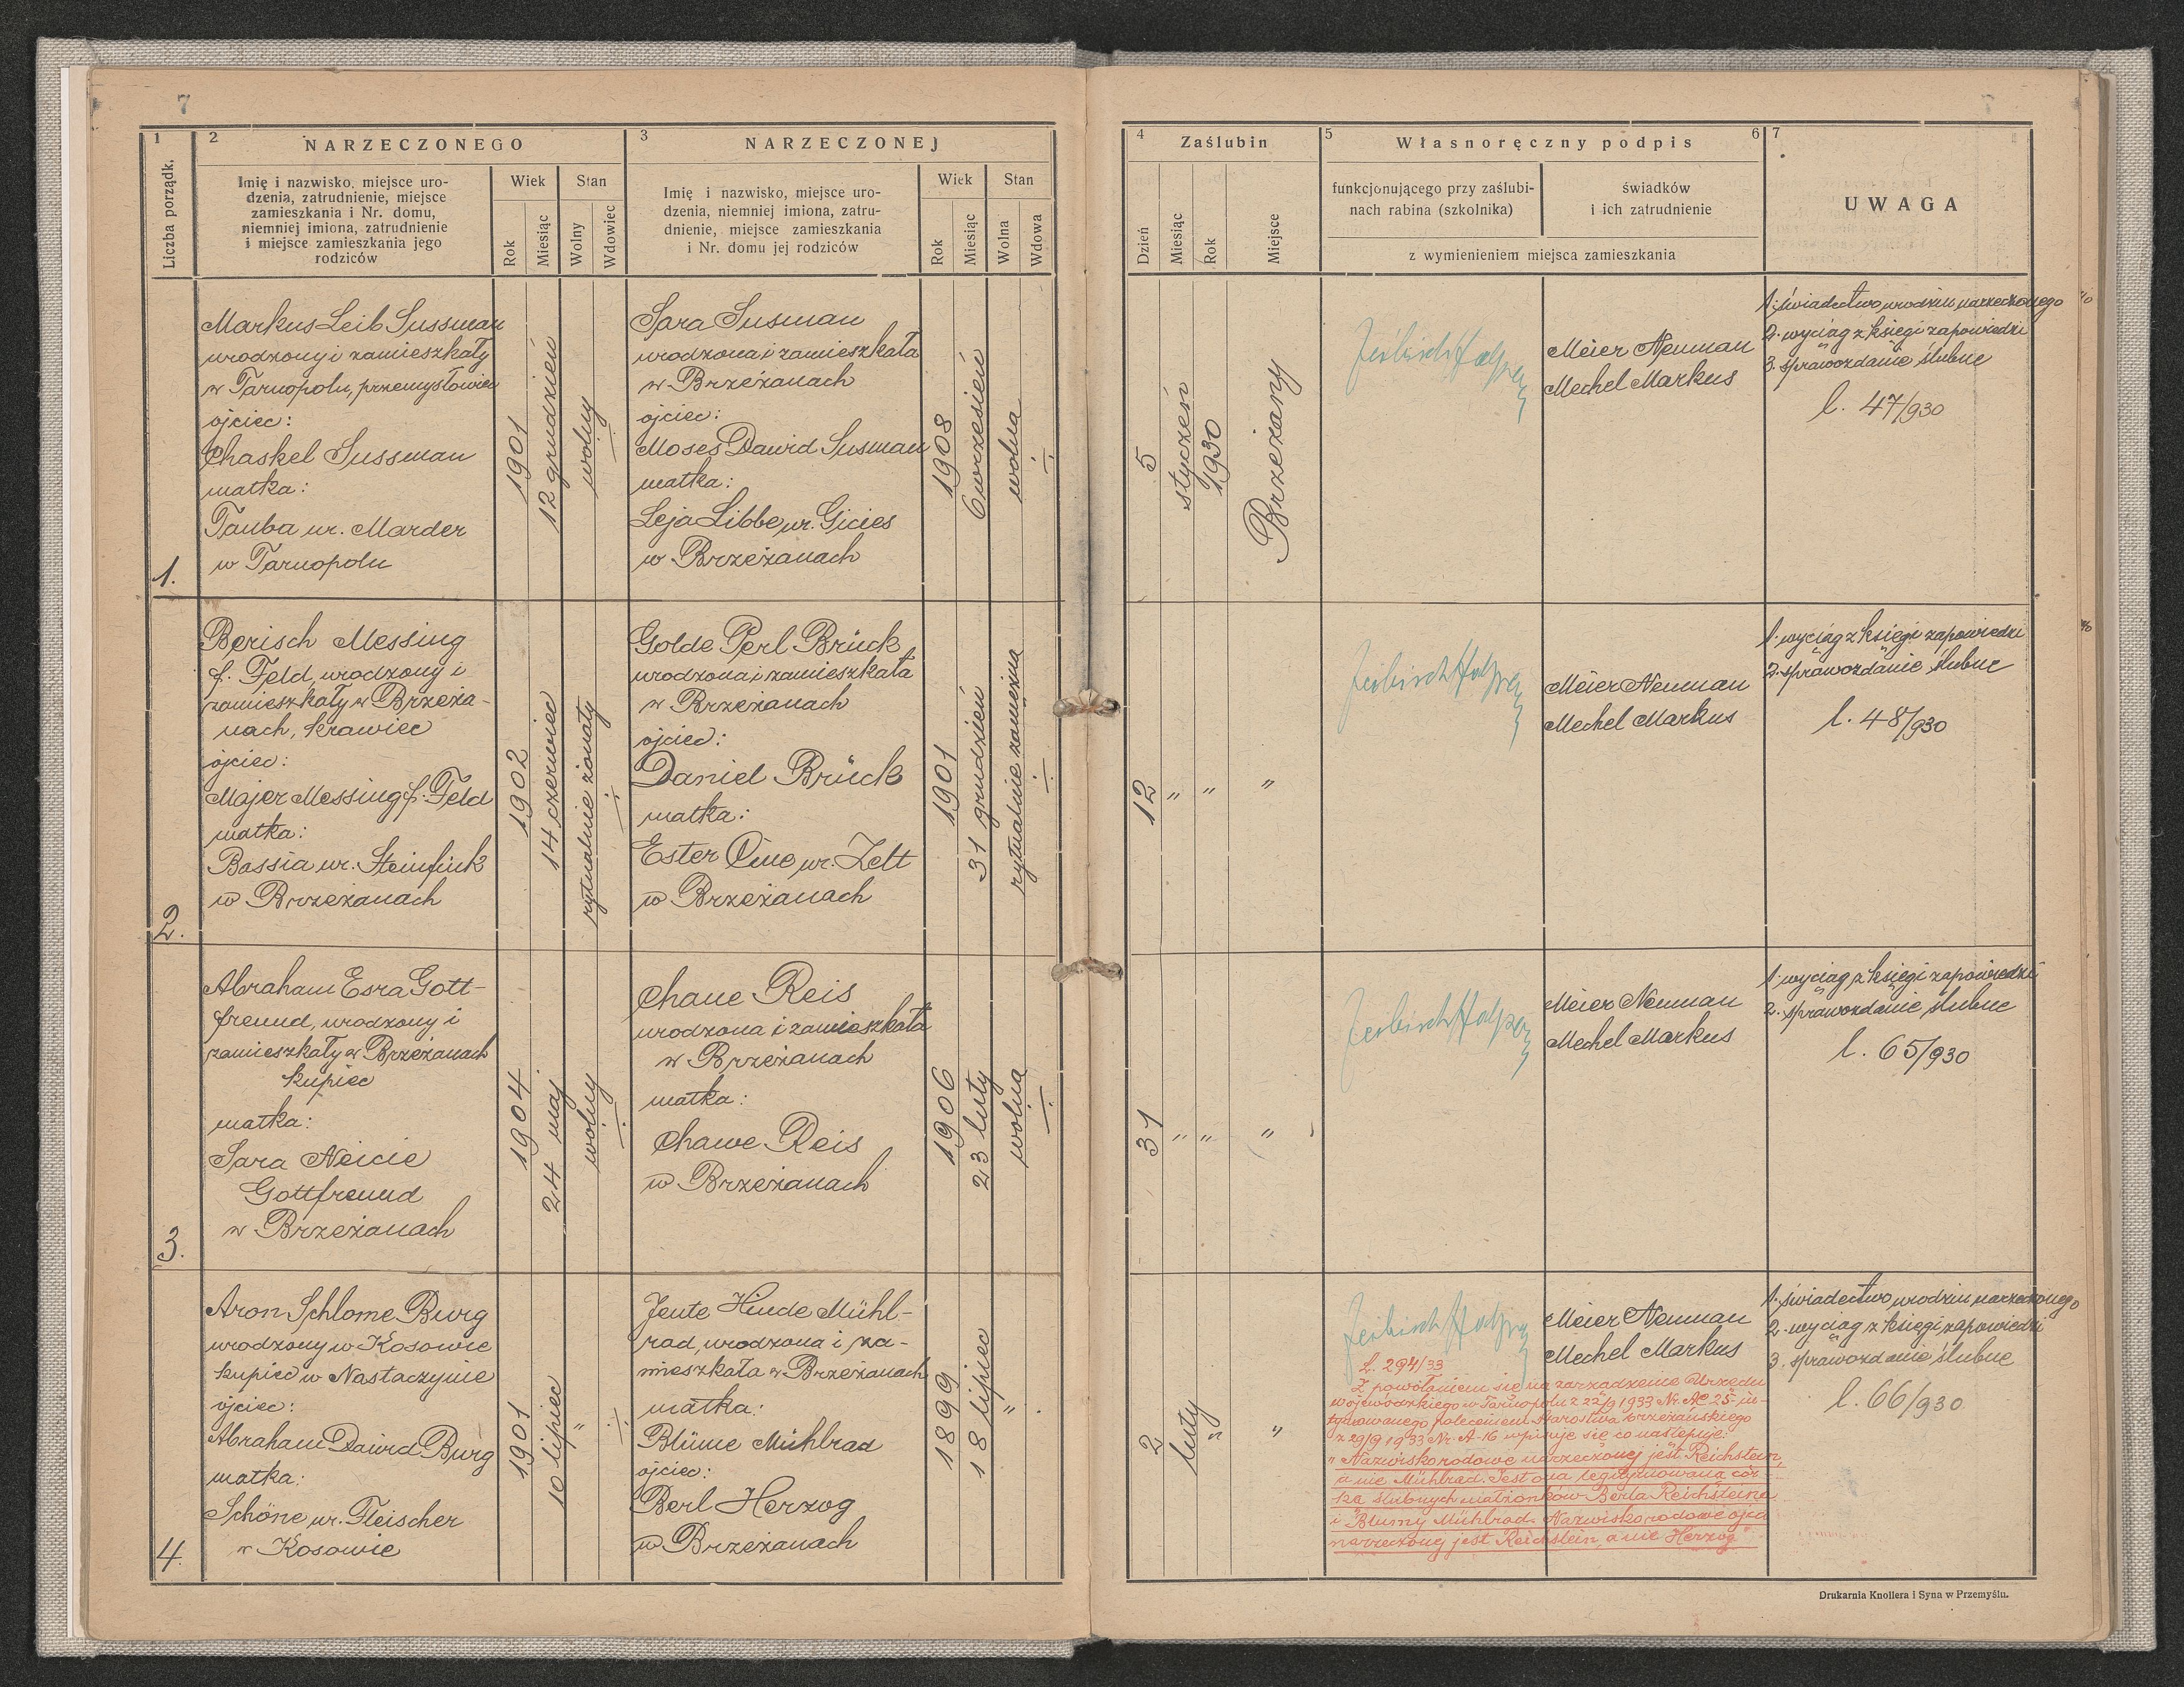 7
1
2
NARZECZONEGO
3
NARZECZONEJ
Liczba porządk.
Imię i nazwisko, miejsce uro-
dzenia, zatrudnienie, miejsce
zamieszkania i Nr. domu,
niemniej imiona, zatrudnienie
i miejsce zamieszkania jego
rodziców
Wiek
Stan
Rok
Miesiąc
Wolny
Wdowiec
Imię i nazwisko, miejsce uro-
dzenia, niemniej imiona, zatru-
dnienie, miejsce zamieszkania
i Nr. domu jej rodziców
Wiek
Stan
Rok
Miesiąc
Wolna
Wdowa
1.
Markus Leib Sussman
urodzony i zamieszkały
w Tarnopolu, przemysłowiec
ojciec:
Chaskel Sussman
matka:
Tauba ur. Marder
w Tarnopolu
1901
12 grudzień
wolny
Sara Susman
urodzona i zamieszkała
w Brzeżanach
ojciec:
Moses Dawid Susman
matka:
Leja Libbe ur. Gicies
w Brzeżanach
1908
6 wrzesień
wolna
2.
Berisch Messing
f. Feld, urodzony i
zamieszkały w Brzeża-
nach, krawiec
ojciec:
Majer Messing f. Feld
matka:
Bassia ur. Steinfink
w Brzeżanach
1902
14 czerwiec
rytualnie żonaty
Golde Perl Brück
urodzona i zamieszkała
w Brzeżanach
ojciec:
Daniel Brück
matka:
Ester Cine ur. Zelt
w Brzeżanach
1901
31 grudzień
rytualnie zamężna
3.
Abraham Esra Gott-
freund, urodzony i
zamieszkały w Brzeżanach
kupiec
matka:
Sara Neicie
Gottfreund
w Brzeżanach
1904
24 maj
wolny
Chane Reis
urodzona i zamieszkała
w Brzeżanach
matka:
Chawe Reis
w Brzeżanach
1906
23 luty
wolna
4.
Aron Schlome Burg
urodzony w Kosowie
kupiec w Nastaczynie
ojciec:
Abraham Dawid Burg
matka:
Schöne ur. Fleischer
w Kosowie
1901
10 lipiec
"
Jente Hinde Mühl-
rad, urodzona i za-
mieszkała w Brzeżanach
matka:
Blüme Mühlrad
ojciec:
Berl Herzog
w Brzeżanach
1899
18 lipiec
"
4
Zaślubin
5
Własnoręczny podpis
6
7
Dzień
Miesiąc
Rok
Miejsce
funkcjonującego przy zaślubi-
nach rabina (szkolnika)
świadków
i ich zatrudnienie
z wymienieniem miejsca zamieszkania
UWAGA
5
styczeń
1930
Brzeżany
Meier Neuman
Mechel Markus
1. świadectwo urodzin narzeczonego
2. wyciąg z księgi zapowiedzi
3. sprawozdanie ślubne
l. 47/930
12
"
"
"
Meier Neuman
Mechel Markus
1. wyciąg z księgi zapowiedzi
2. sprawozdanie ślubne
l. 48/930
31
"
"
"
Meier Neuman
Mechel Markus
1. wyciąg z księgi zapowiedzi
2. sprawozdanie ślubne
l. 65/930
2
luty
"
"
Meier Neuman
Mechel Markus
1. świadectwo urodzin narzeczonego
2. wyciąg z księgi zapowiedzi
3. sprawozdanie ślubne
l. 66/930
L. 294/33
Z powołaniem się na zarządzenie Urzędu
wojewódzkiego w Tarnopolu z 22/9 1933 Nr. AC 25 in-
tymowanego poleceniem Starostwa brzeżańskiego
z 29/9 1933 Nr. A-16 wpisuje się co następuje:
"Nazwisko rodowe narzeczonej jest Reichstein,
a nie Mühlrad. Jest ona legitymowaną cór-
ką ślubnych małżonków Berla Reichsteina
i Blumy Mühlrad. Nazwisko rodowe ojca
narzeczonej jest Reichstein, a nie Herzog"
Drukarnia Knollera i Syna w Przemyślu.